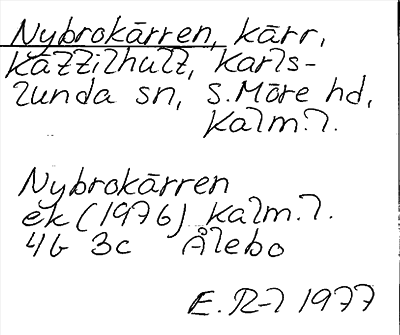 Nybrokärren, kärr,
Källilhult, Karls-
lunda sn, S. Möre hd,
Kalm.l.
Nybrokärren
ek (1976) Kalm.l.
4G 3c Ålebo
E. R-l 1977